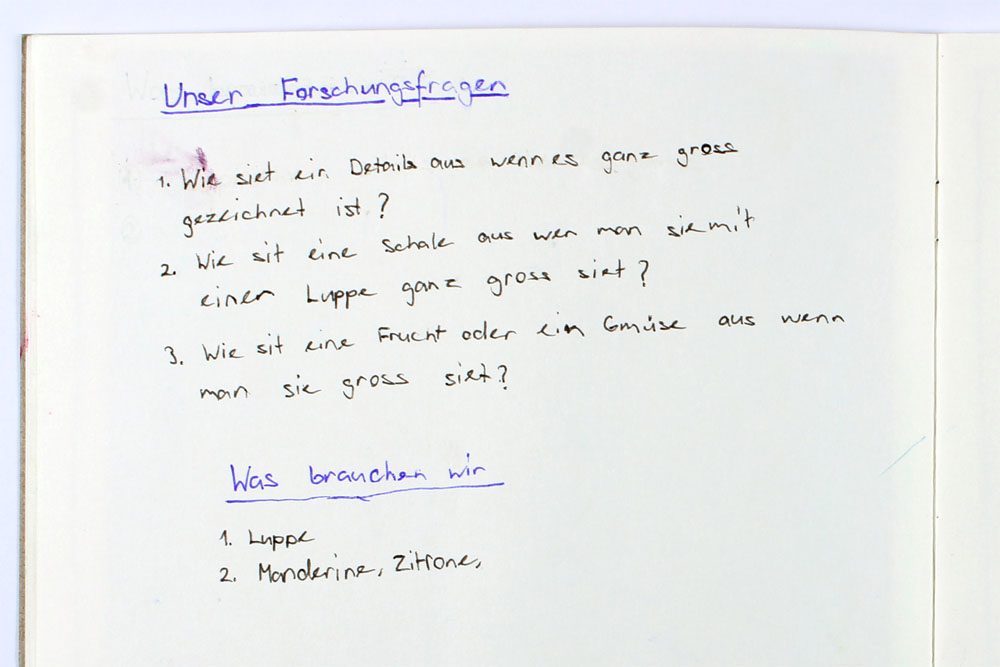 Unser Forschungsfragen
1. Wie siet ein Details aus wenn es ganz gross
gezeichnet ist?
2. Wie sit eine Schale aus wen man sie mit
einer Luppe ganz gross siet?
3. Wie sit eine Frucht oder ein Gmüse aus wenn
man sie gross siet?
Was brauchen wir
1. Luppe
2. Manderine, Zitrone,